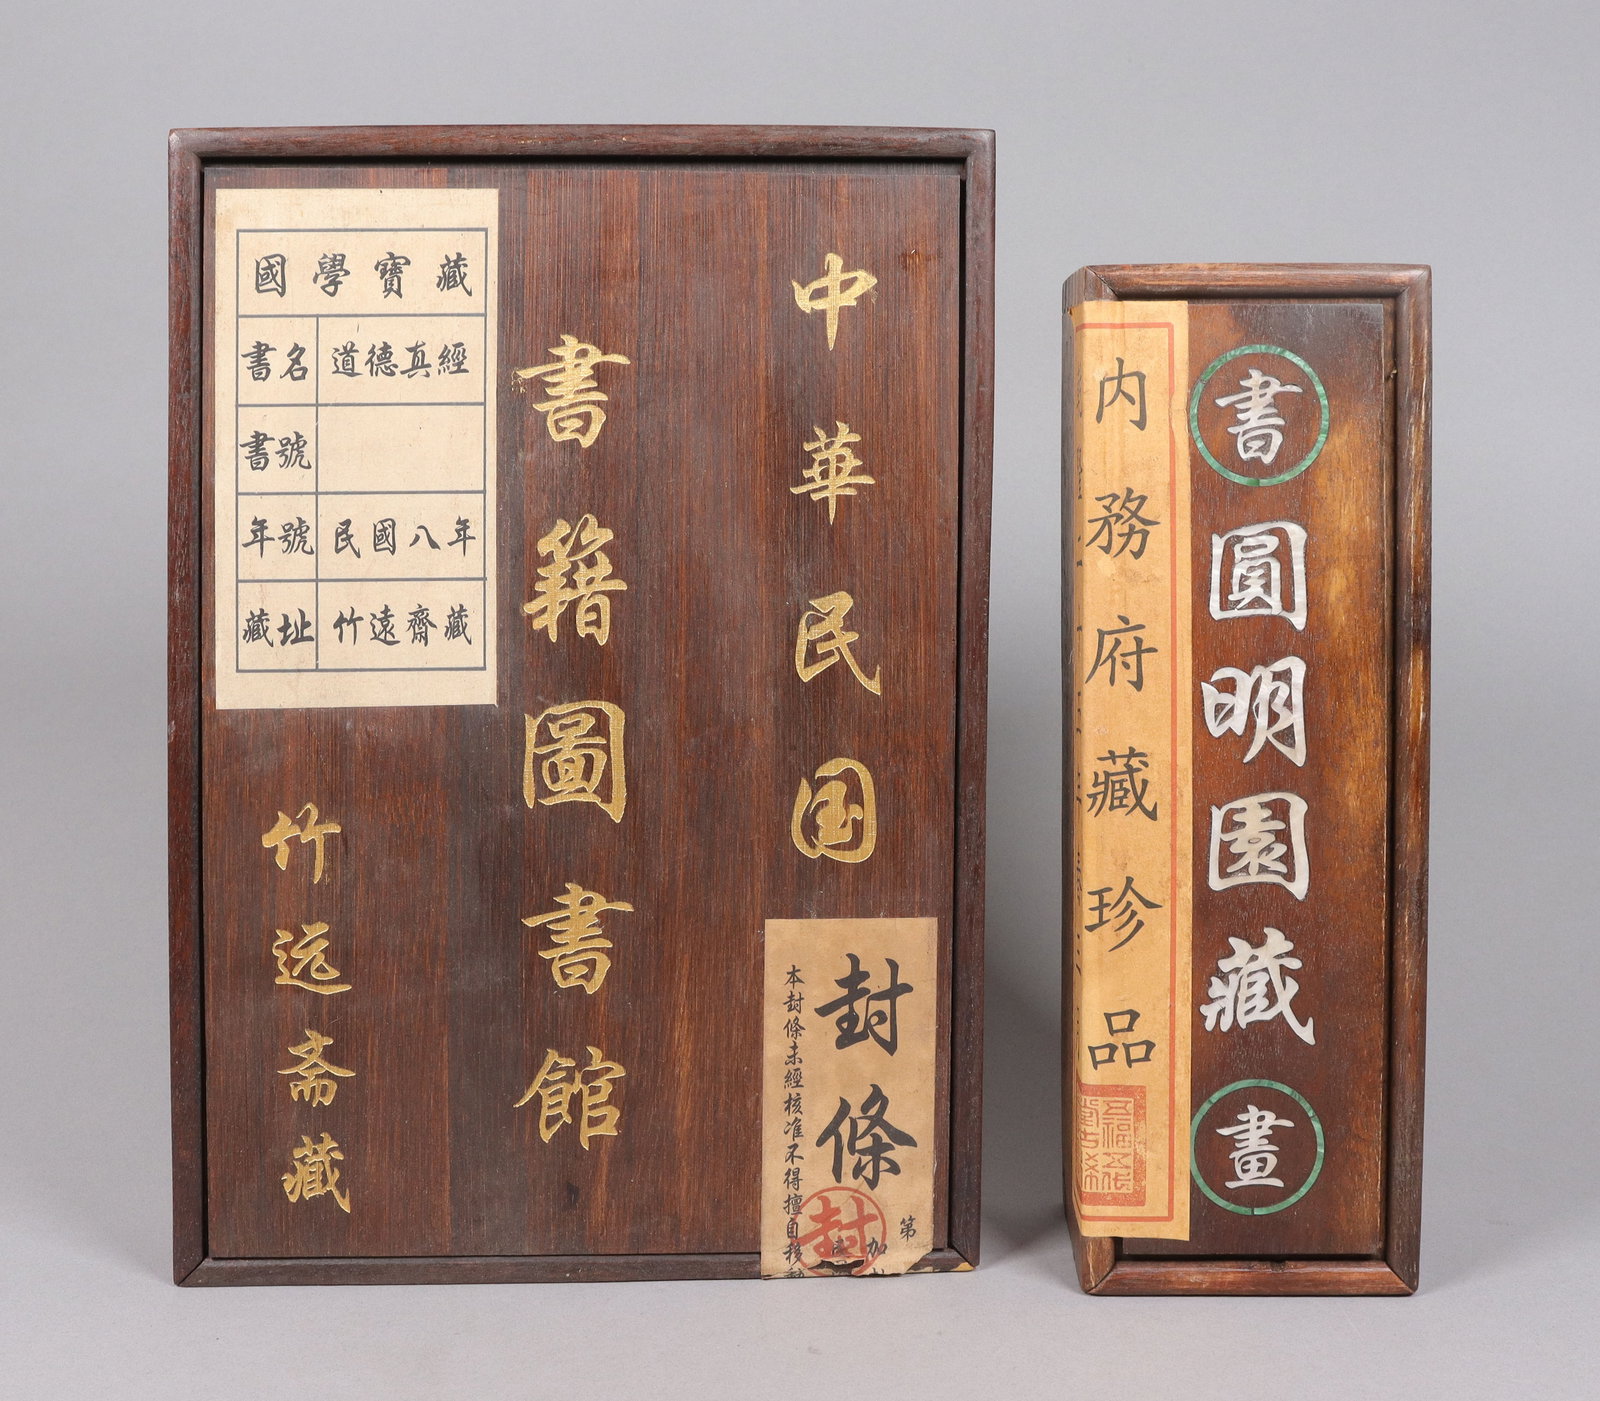 中華民国
書籍圖書館
竹远斋藏
國學寶藏
書名 道德真經
書號
年號 民國八年
藏址 竹遠齋藏
封條
本封條未經核准不得擅自移動
封
第
加
内務府藏珍品
書
圓明園藏
畫